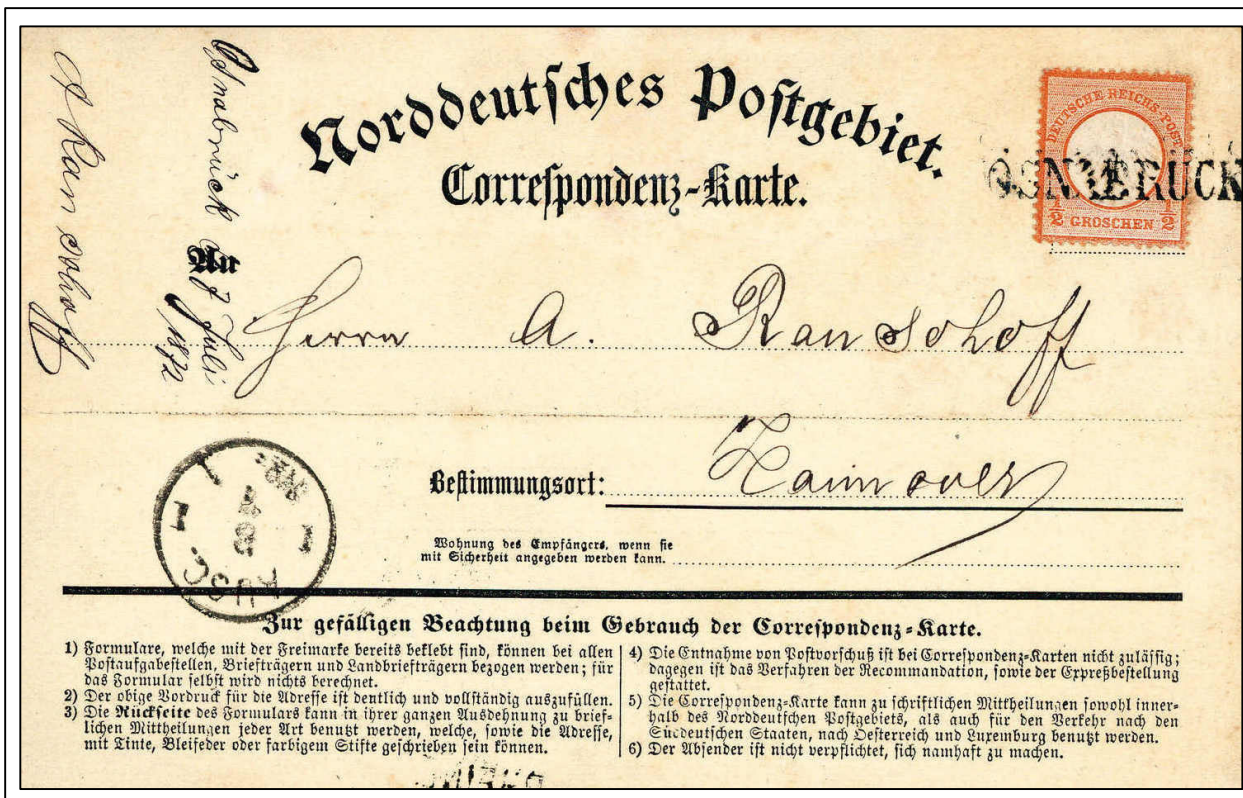 Norddeutsches Postgebiet.
Correspondenz-Karte.
DEUTSCHE REICHS-POST
1/2 GROSCHEN 1/2
OSNABRÜCK
Osnabrück
7 Juli
1872
A Ranschoff
An
Herrn A. Ranschoff
Bestimmungsort: Hannover
Wohnung des Empfängers, wenn sie
mit Sicherheit angegeben werden kann.
AUSG
8
7
I
I
I
Zur gefälligen Beachtung beim Gebrauch der Correspondenz-Karte.
1) Formulare, welche mit der Freimarke bereits beklebt sind, können bei allen
Postaufgabestellen, Briefträgern und Landbriefträgern bezogen werden; für
das Formular selbst wird nichts berechnet.
2) Der obige Vordruck für die Adresse ist deutlich und vollständig auszufüllen.
3) Die Rückseite des Formulars kann in ihrer ganzen Ausdehnung zu brief-
lichen Mittheilungen jeder Art benutzt werden, welche, sowie die Adresse,
mit Tinte, Bleifeder oder farbigem Stifte geschrieben sein können.
4) Die Entnahme von Postvorschuß ist bei Correspondenz-Karten nicht zulässig;
dagegen ist das Verfahren der Recommandation, sowie der Expreßbestellung
gestattet.
5) Die Correspondenz-Karte kann zu schriftlichen Mittheilungen sowohl inner-
halb des Norddeutschen Postgebiets, als auch für den Verkehr nach den
Süddeutschen Staaten, nach Oesterreich und Luxemburg benutzt werden.
6) Der Absender ist nicht verpflichtet, sich namhaft zu machen.